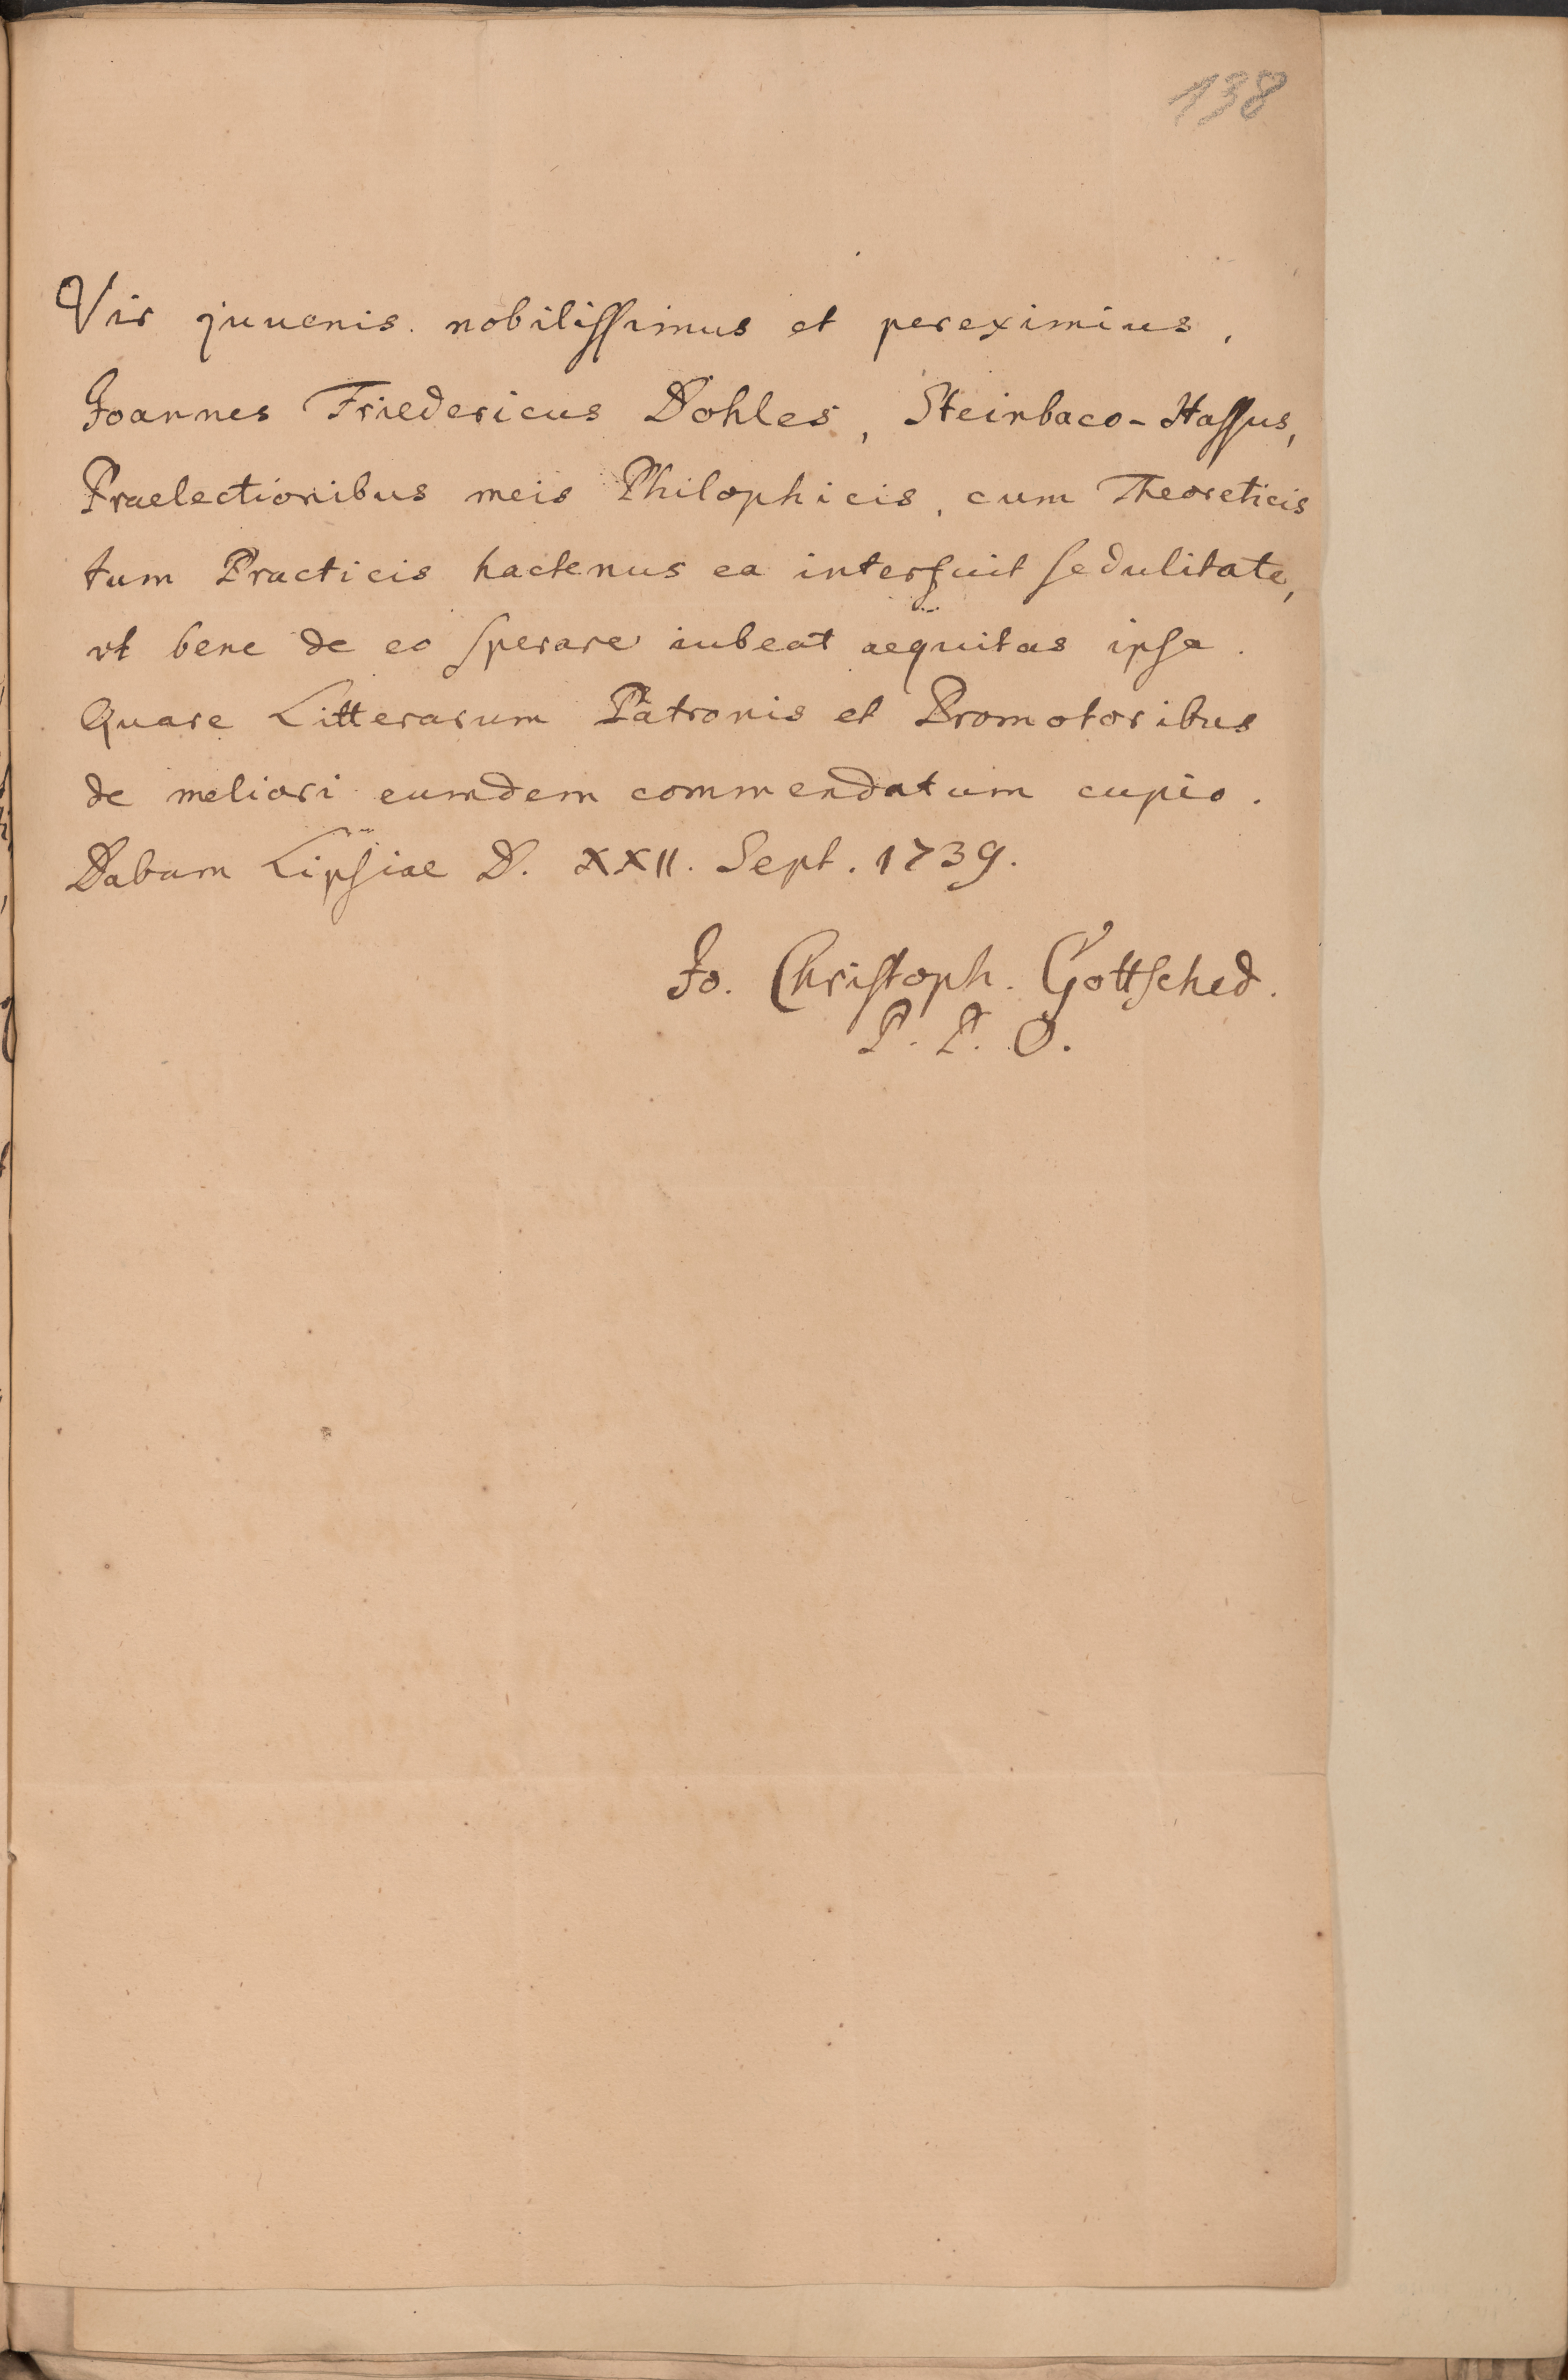 138
Vir juuenis nobilissimus et pereximius,
Joannes Friedericus Dohles, Steinbaco-Hassus,
Praelectionibus meis Philophicis, cum Theoreticis
tum Practicis hactenus ea interfuit sedulitate,
vt bene de eo sperare iubeat aequitas ipsa.
Quare Litterarum Patronis et Promotoribus
de meliori eumdem commendatum cupio.
Dabam Lipsiae D. XXII. Sept. 1739.
Jo. Christoph. Gottsched.
P. P. O.